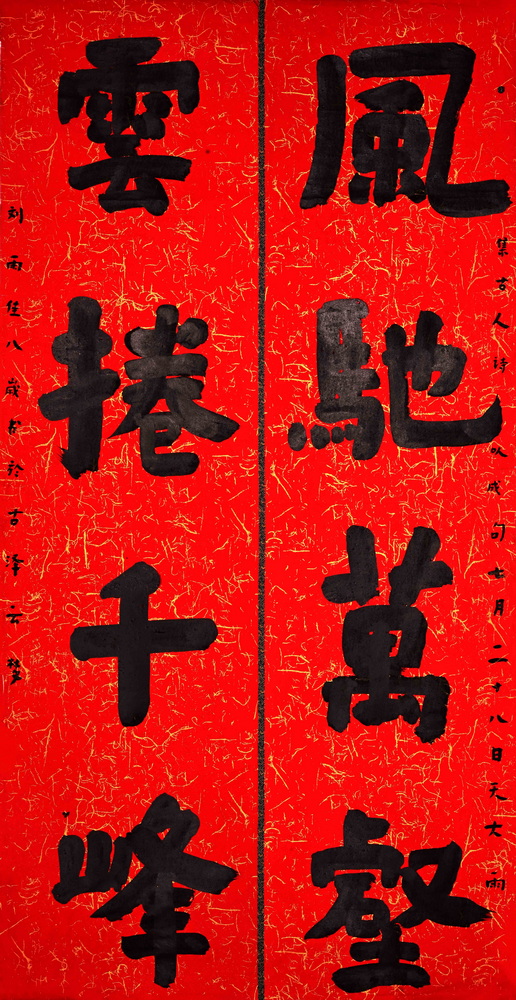 風馳萬壑
集古人诗以成句七月二十八日天大雨
雲捲千峰
刘雨佳八歲书於古泽云梦